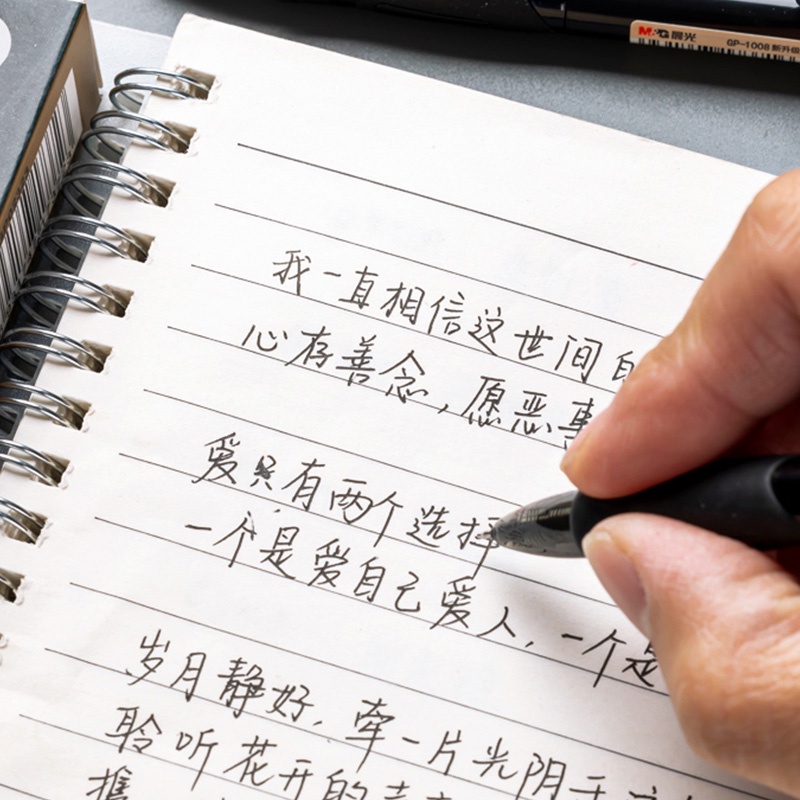 M&G 晨光 GP-1008 新升级
我一直相信这世间
心存善念，愿恶事
爱只有两个选择
一个是爱自己爱人，一个是
岁月静好，牵一片光阴于
聆听花开的声音
携